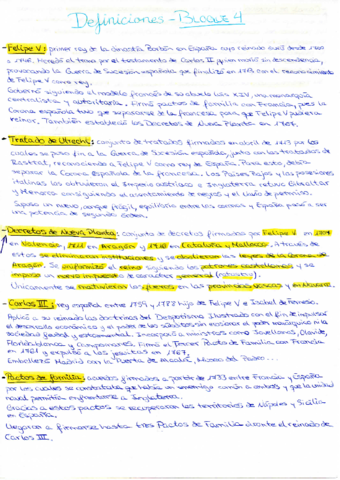 Definiciones - Bloque 4
- Felipe V: primer rey de la dinastía Borbón en España cuyo reinado duró desde 1700
a 1746. Heredó el trono por el testamento de Carlos II, quien murió sin descendencia,
provocando la Guerra de Sucesión española que finalizó en 1713 con el reconocimiento
de Felipe V como rey.
Gobernó siguiendo el modelo francés de su abuelo Luis XIV, una monarquía
centralista y autoritaria. Firmó pactos de familia con Francia, pues la
Corona española tuvo que separarse de la francesa para que Felipe V pudiera
reinar. También estableció los Decretos de Nueva Planta en
- Tratado de Utrecht: conjunto de tratados firmados en abril de 1713 por los
cuales se puso fin a la Guerra de Sucesión española, junto con los tratados de
Rastatt, reconociendo a Felipe V como rey de España. Para esto, debía
separar la Corona Española de la francesa. Los Países Bajos y las posesiones
italianas las obtuvieron el Imperio austriaco e Inglaterra retuvo Gibraltar
y Menorca consiguiendo el asentamiento de negros y el navío de permiso.
Supuso un nuevo, aunque frágil, equilibrio entre los estados y España pasó a ser
una potencia de segundo orden.
- Decretos de Nueva Planta: conjunto de decretos firmados por Felipe V en
en Valencia, en Aragón y en Cataluña y Mallorca. A través de
estos se eliminaron instituciones y se abolieron las leyes de la Corona de
Aragón. Se uniformizó el reino siguiendo los patrones castellanos y se
impuso un nuevo impuesto de carácter general
Únicamente se mantuvieron los fueros en las provincias vascas y en Navarra.
- Carlos III: rey español entre 1759 y 1788 hijo de Felipe V e Isabel de Farnesio.
Aplicó a su reinado las doctrinas del Despotismo Ilustrado con el fin de impulsar
el desarrollo económico y el poder de los súbditos sin erosionar el poder monárquico ni la
sociedad feudal y estamental. Incorporó a ministros como Jovellanos, Olavide,
Floridablanca y Campomanes. Firmó el Tercer Pacto de Familia con Francia
en 1761 y expulsó a los jesuitas en 1767.
Embelleció Madrid con la Puerta de Alcalá, Museo del Prado...
- Pactos de Familia: acuerdos firmados a partir de 1733 entre Francia y España
por los cuales se constataba que había un enemigo común a ambos y que la unidad
naval permitía enfrentarse a Inglaterra.
Gracias a estos pactos se recuperaron los territorios de Nápoles y Sicilia
en España.
Llegaron a firmarse hasta tres Pactos de Familia durante el reinado de
Carlos III.